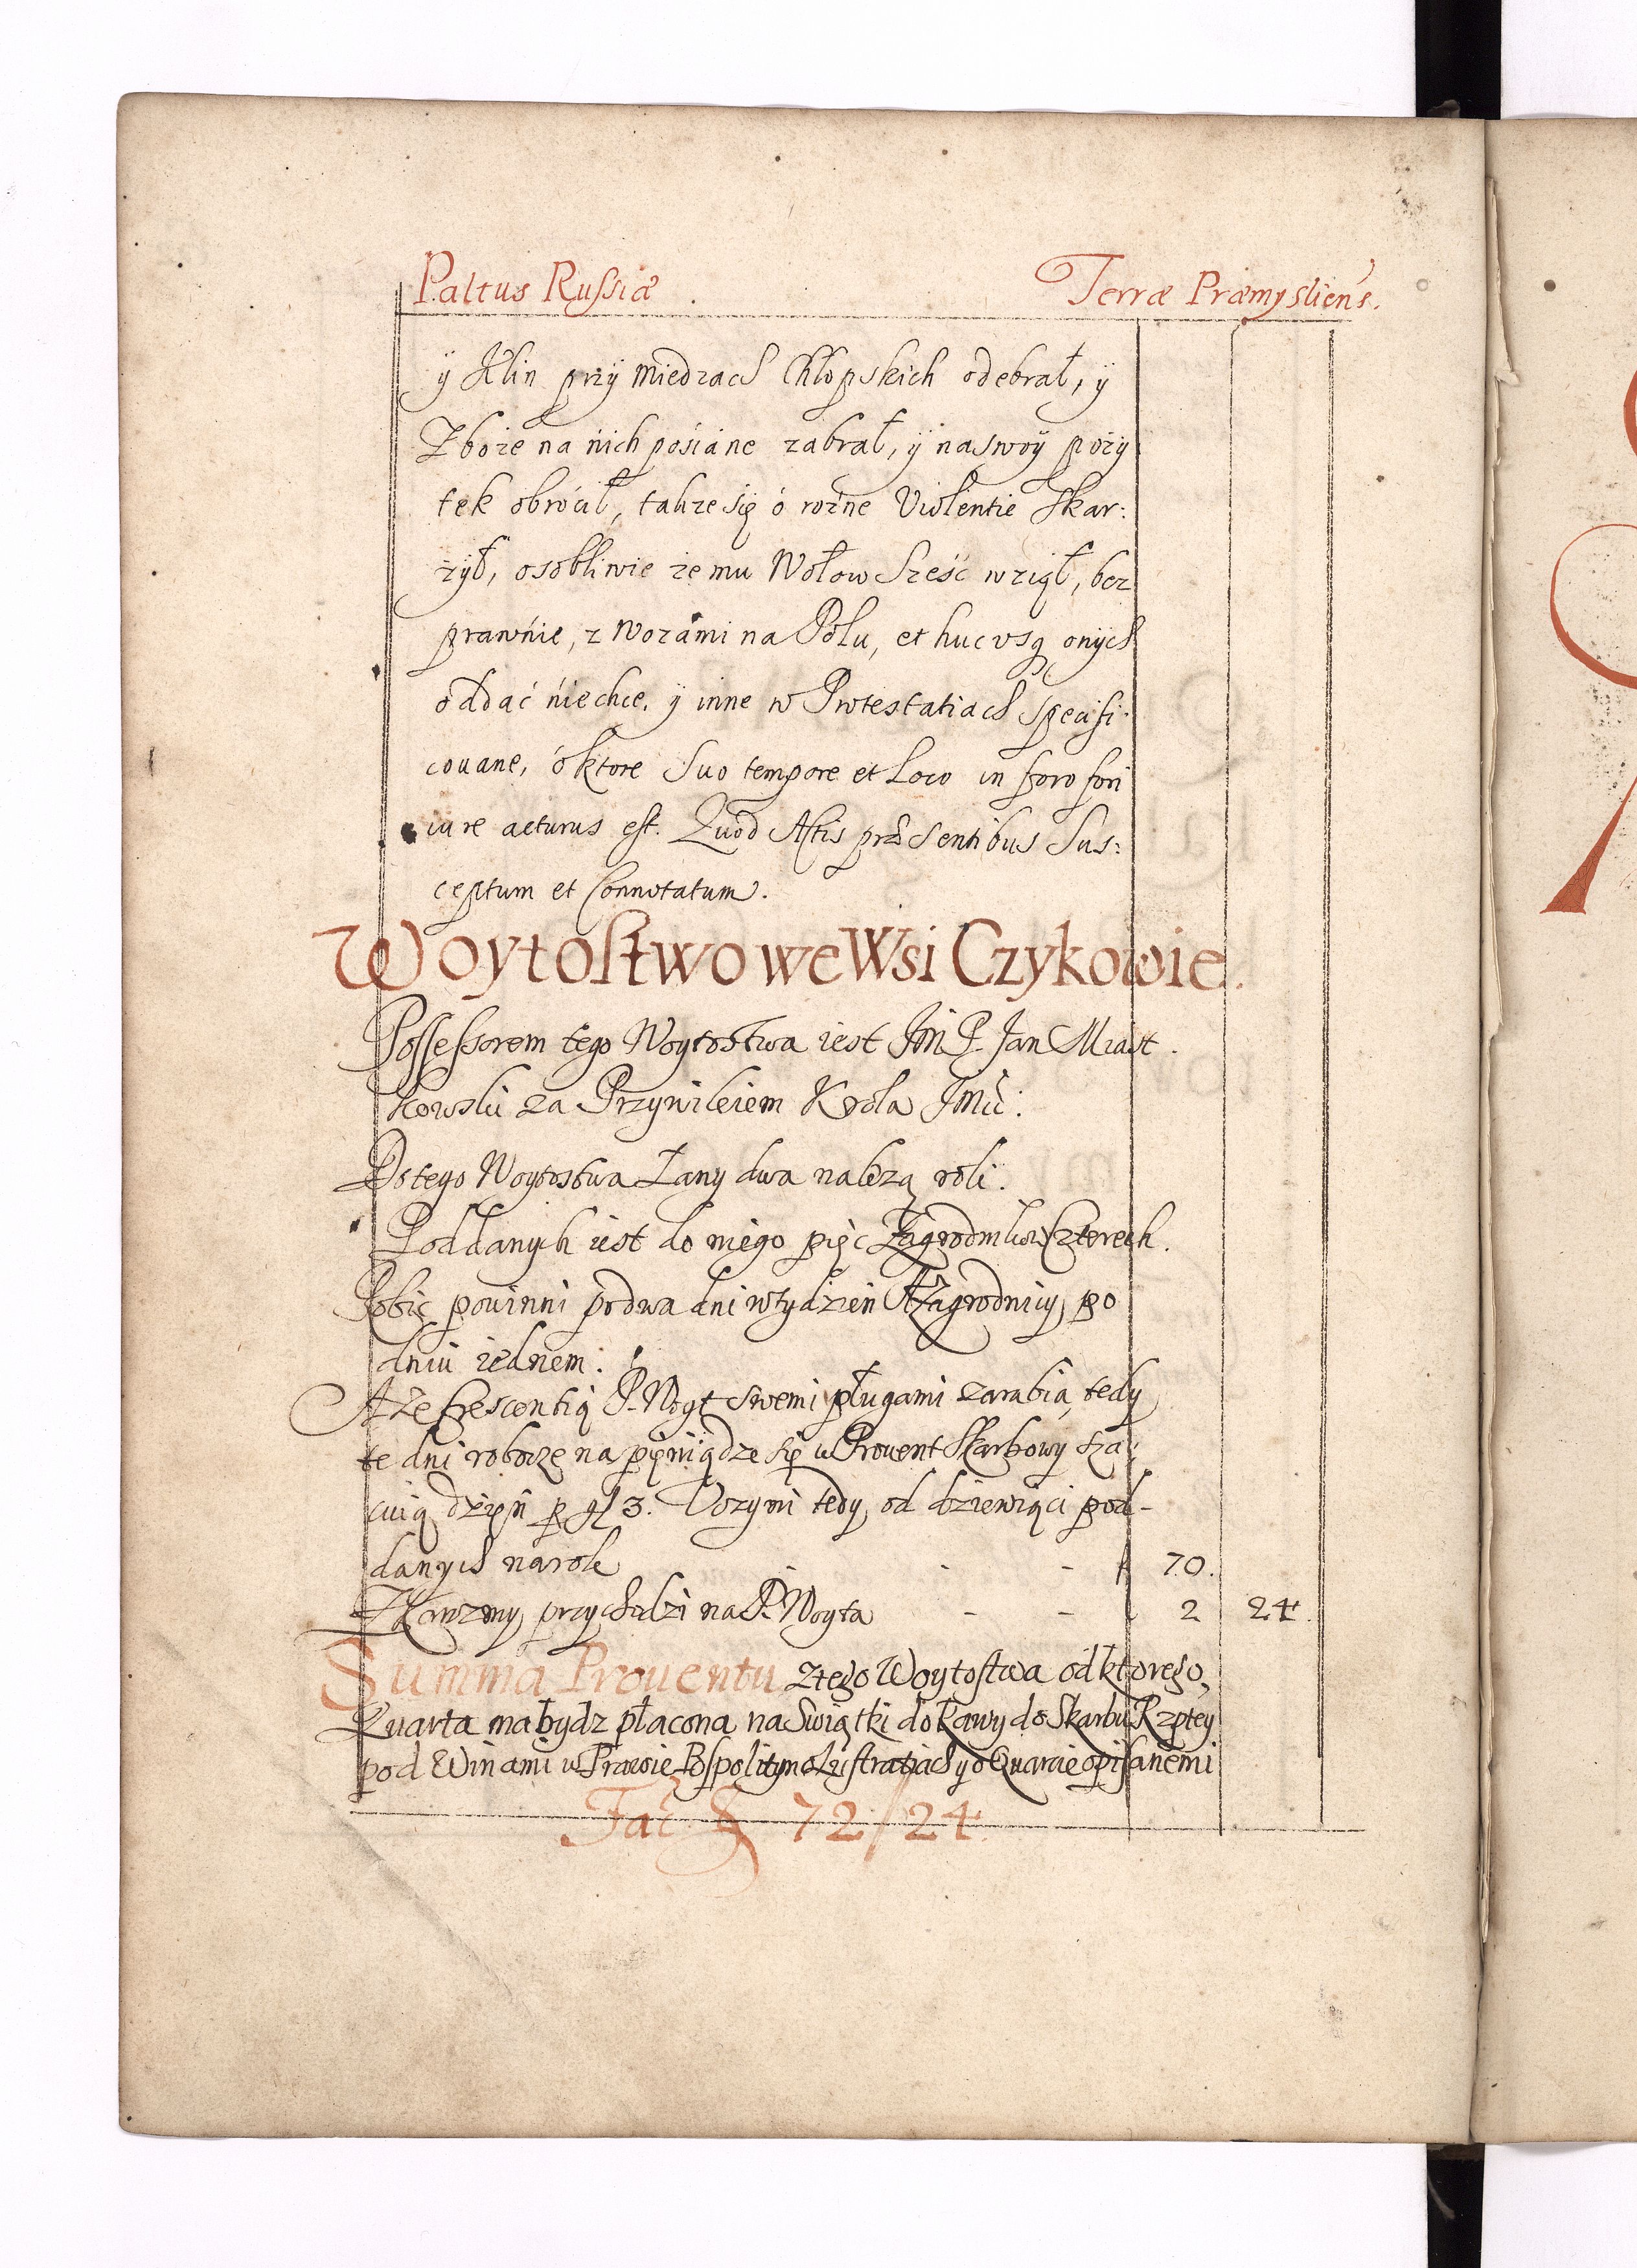 Paltus Russiæ Terræ Præmysliens.
ÿ Klin przÿ miedzach Chłopskich odebrał, ÿ
Zboże na nich pośiane zabrał, ÿ na swoÿ pozy
tek obroćił, takze się o rożne Violentie skar:
żÿł, osobliwie że mu Wołow Sześć wziął, bez
prawnie, z wozámi na Polu, et huc usq onÿch
oddać niechce. ÿ inne w Protestatiach specifi:
cowane, o ktore Suo tempore et Loco in foro fori
iure acturus est. Quod Actis præsentibus Sus:
ceptum et Connotatum.
Woytostwo we Wsi Czykowie.
Possessorem tego Woytostwa iest JM P. Jan Miast
kowski za Przywileiem Krola JMci:
Do tego Woytostwa Łany dwa nalezą roli.
Poddanych iest do niego pięc Zagrodnikow Czterech.
Robic powinni po dwa dni w tydzien A Zagrodnicy po
dniu iednem.
A że Crescentią P. Woyt swemi pługami zarabia, tedy
te dni robocze na pięniądze się w Prouent Skarbowy sza:
cuią dzięń p gl 3. Uczyni tedy od dziewiąci pod-
danych na rok - - f 70.
Z Karczmy przychodzi na P. Woyta - - 2 24.
Summa Prouentu z tego Woytostwa od ktorego
Kwarta ma bydz płacona na Swiątki do Rawy do Skarbu Rzptey
pod Winami w Prawie Pospolitym o Lustratiach y o Quarcie opisanemi
Fac f 72/24